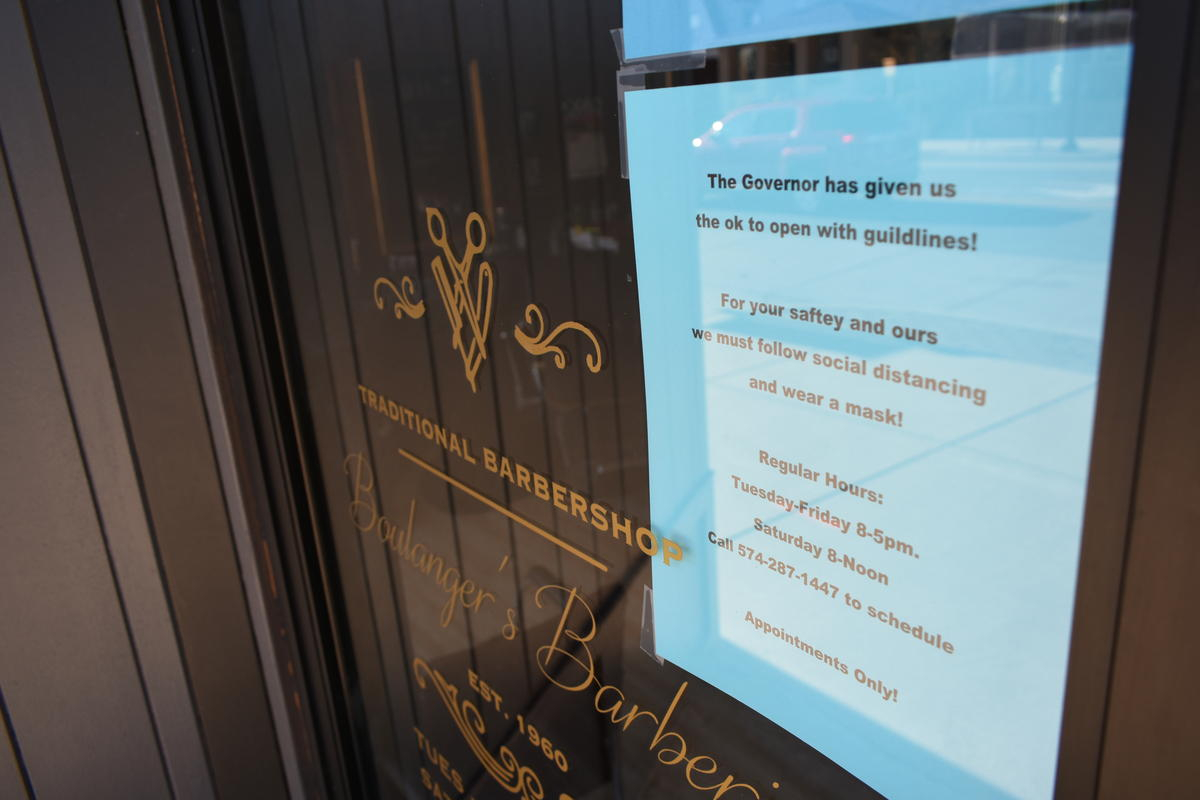 TRADITIONAL BARBERSHOP
Boulanger's
EST. 1960
TUES
The Governor has given us
the ok to open with guildlines!
For your saftey and ours
we must follow social distancing
and wear a mask!
Regular Hours:
Tuesday-Friday 8-5pm.
Saturday 8-Noon
Call 574-287-1447 to schedule
Appointments Only!